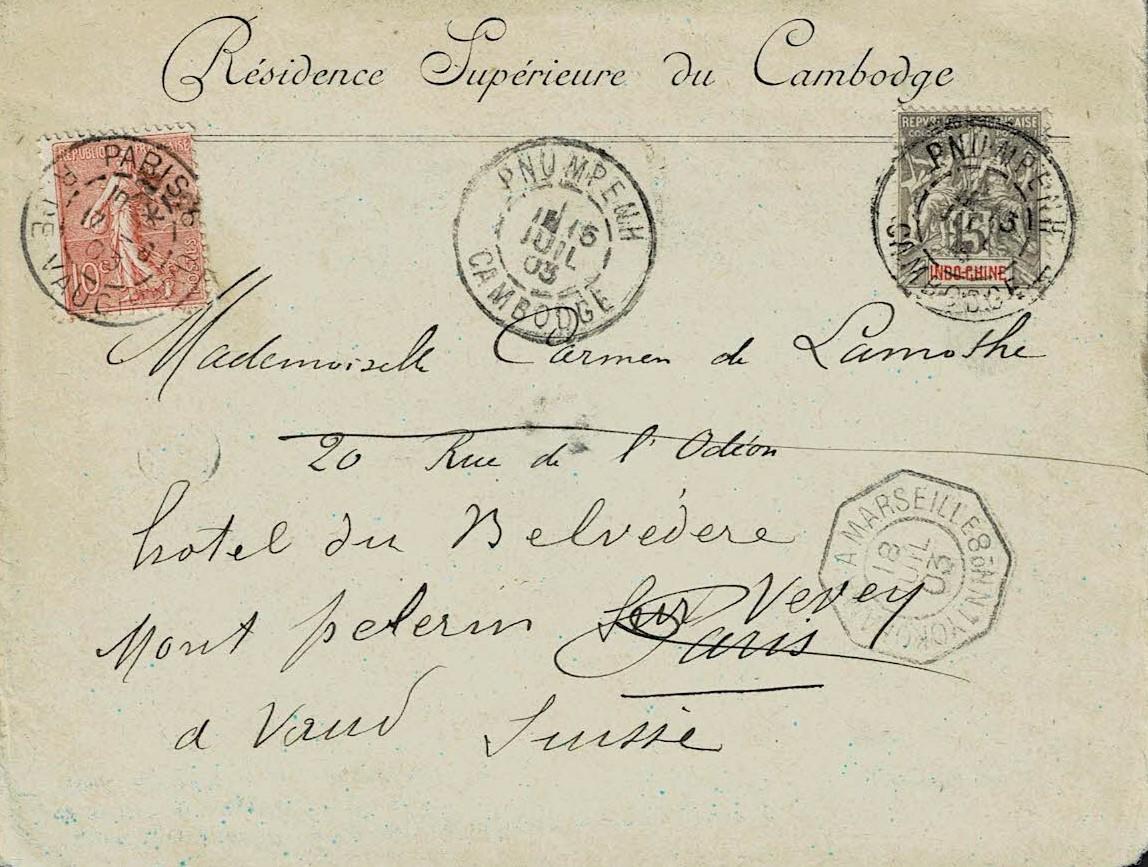 Résidence Supérieure du Cambodge
REPUBLIQUE FRANÇAISE
10c
POSTES
PARIS
R. DE VAUG
PNUMPENH
15
JUIL
03
CAMBODGE
REPVBLIQVE FRANÇAISE
15
INDO-CHINE
PNUMPENH
CAMBODGE
Mademoiselle Carmen de Lamothe
20 Rue de l'Odéon
hotel du Belvédere
Mont pelerin Sur Vevey
Paris
d Vaud Suisse
A MARSEILLE
18
JUIL
03